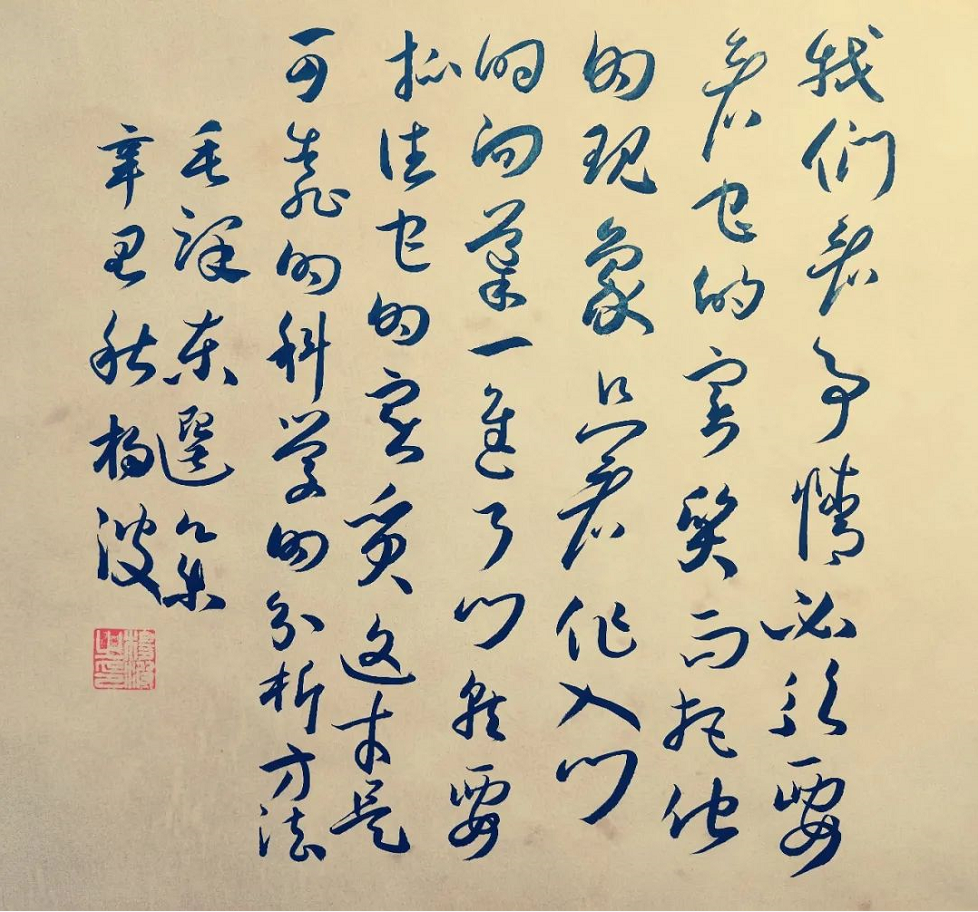 我们看事情必须要
看它的实质而把他
的现象只看作入门
的向导一进了门就要
抓住它的实质这才是
可靠的科学的分析方法
毛泽东選集
辛丑秋杨波
杨波之印